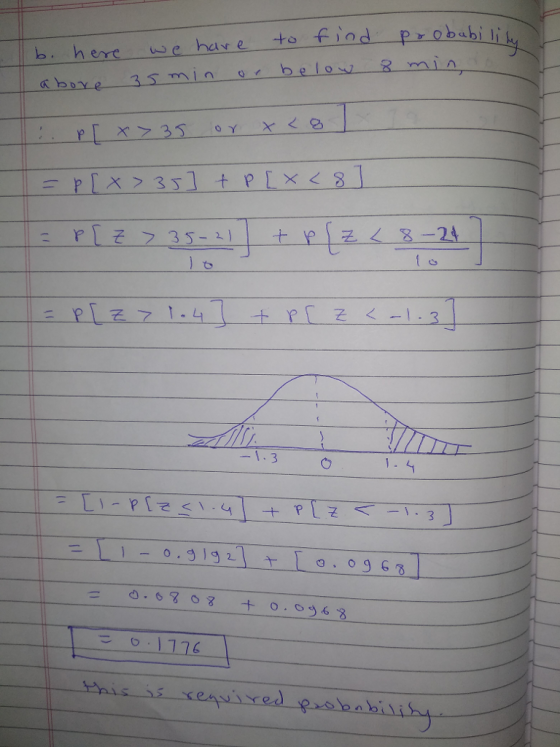 b. here we have to find probability
above 35 min or below 8 min,
∴ P[ X > 35 or X < 8 ]
= P[ X > 35 ] + P[ X < 8 ]
= P[ Z > (35-21)/10 ] + P[ Z < (8-21)/10 ]
= P[ Z > 1.4 ] + P[ Z < -1.3 ]
-1.3 0 1.4
= [1 - P[ Z ≤ 1.4 ] + P[ Z < -1.3 ]
= [ 1 - 0.9192 ] + [ 0.0968 ]
= 0.0808 + 0.0968
= 0.1776
this is required probability.